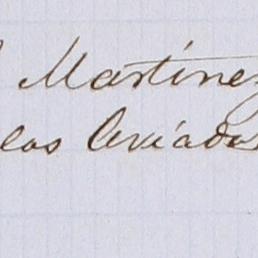 Martinez
los Criados